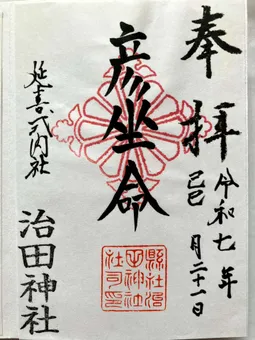 奉拝
令和七年
己巳 月二十一日
彦坐命
延喜式内社
治田神社
縣社治
田神社
社司印